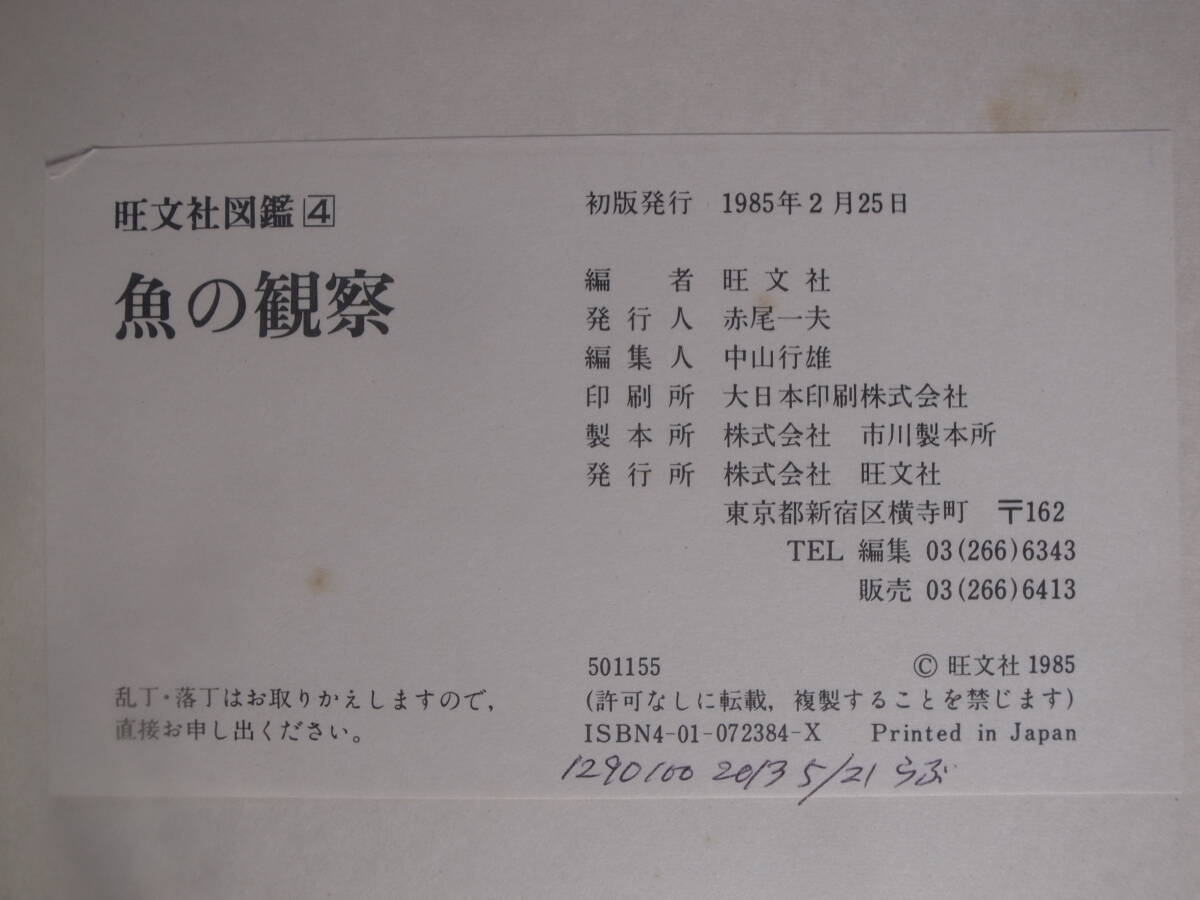 旺文社図鑑4
魚の観察
初版発行 1985年2月25日
編者 旺文社
発行人 赤尾一夫
編集人 中山行雄
印刷所 大日本印刷株式会社
製本所 株式会社 市川製本所
発行所 株式会社 旺文社
東京都新宿区横寺町 〒162
TEL 編集 03(266)6343
販売 03(266)6413
乱丁・落丁はお取りかえしますので,
直接お申し出ください。
501155 © 旺文社 1985
(許可なしに転載, 複製することを禁じます)
ISBN4-01-072384-X Printed in Japan
1290100 2013 5/21 らぶ